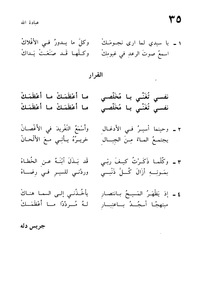 عبادة الله
٣٥
١ - يا سيدي لما ارى نجومك وكل ما يدور في الأفلاك
اسمع صوت الرعد في غيومك وكلها قد صنعت يداك
القرار
نفسي تغني يا مخلصي ما أعظمك ما أعظمك
نفسي تغني يا مخلصي ما أعظمك ما أعظمك
٢ - وحينما أسير في الأدغال وأسمع التغريد في الأغصان
يجتمع الماء من الجبال خريره يأتي مع الألحان
٣ - وكلما ذكرت كيف ربي قد بذل ابنه عن الخطاه
بموته أزال كل ذنبي وردني للسير في رضاه
٤ - إذ يظهر المسيح بانتصار يأخذني إلى السما هناك
منهجا أسجد باعتبار له مرددا ما أعظمك
جريس دله